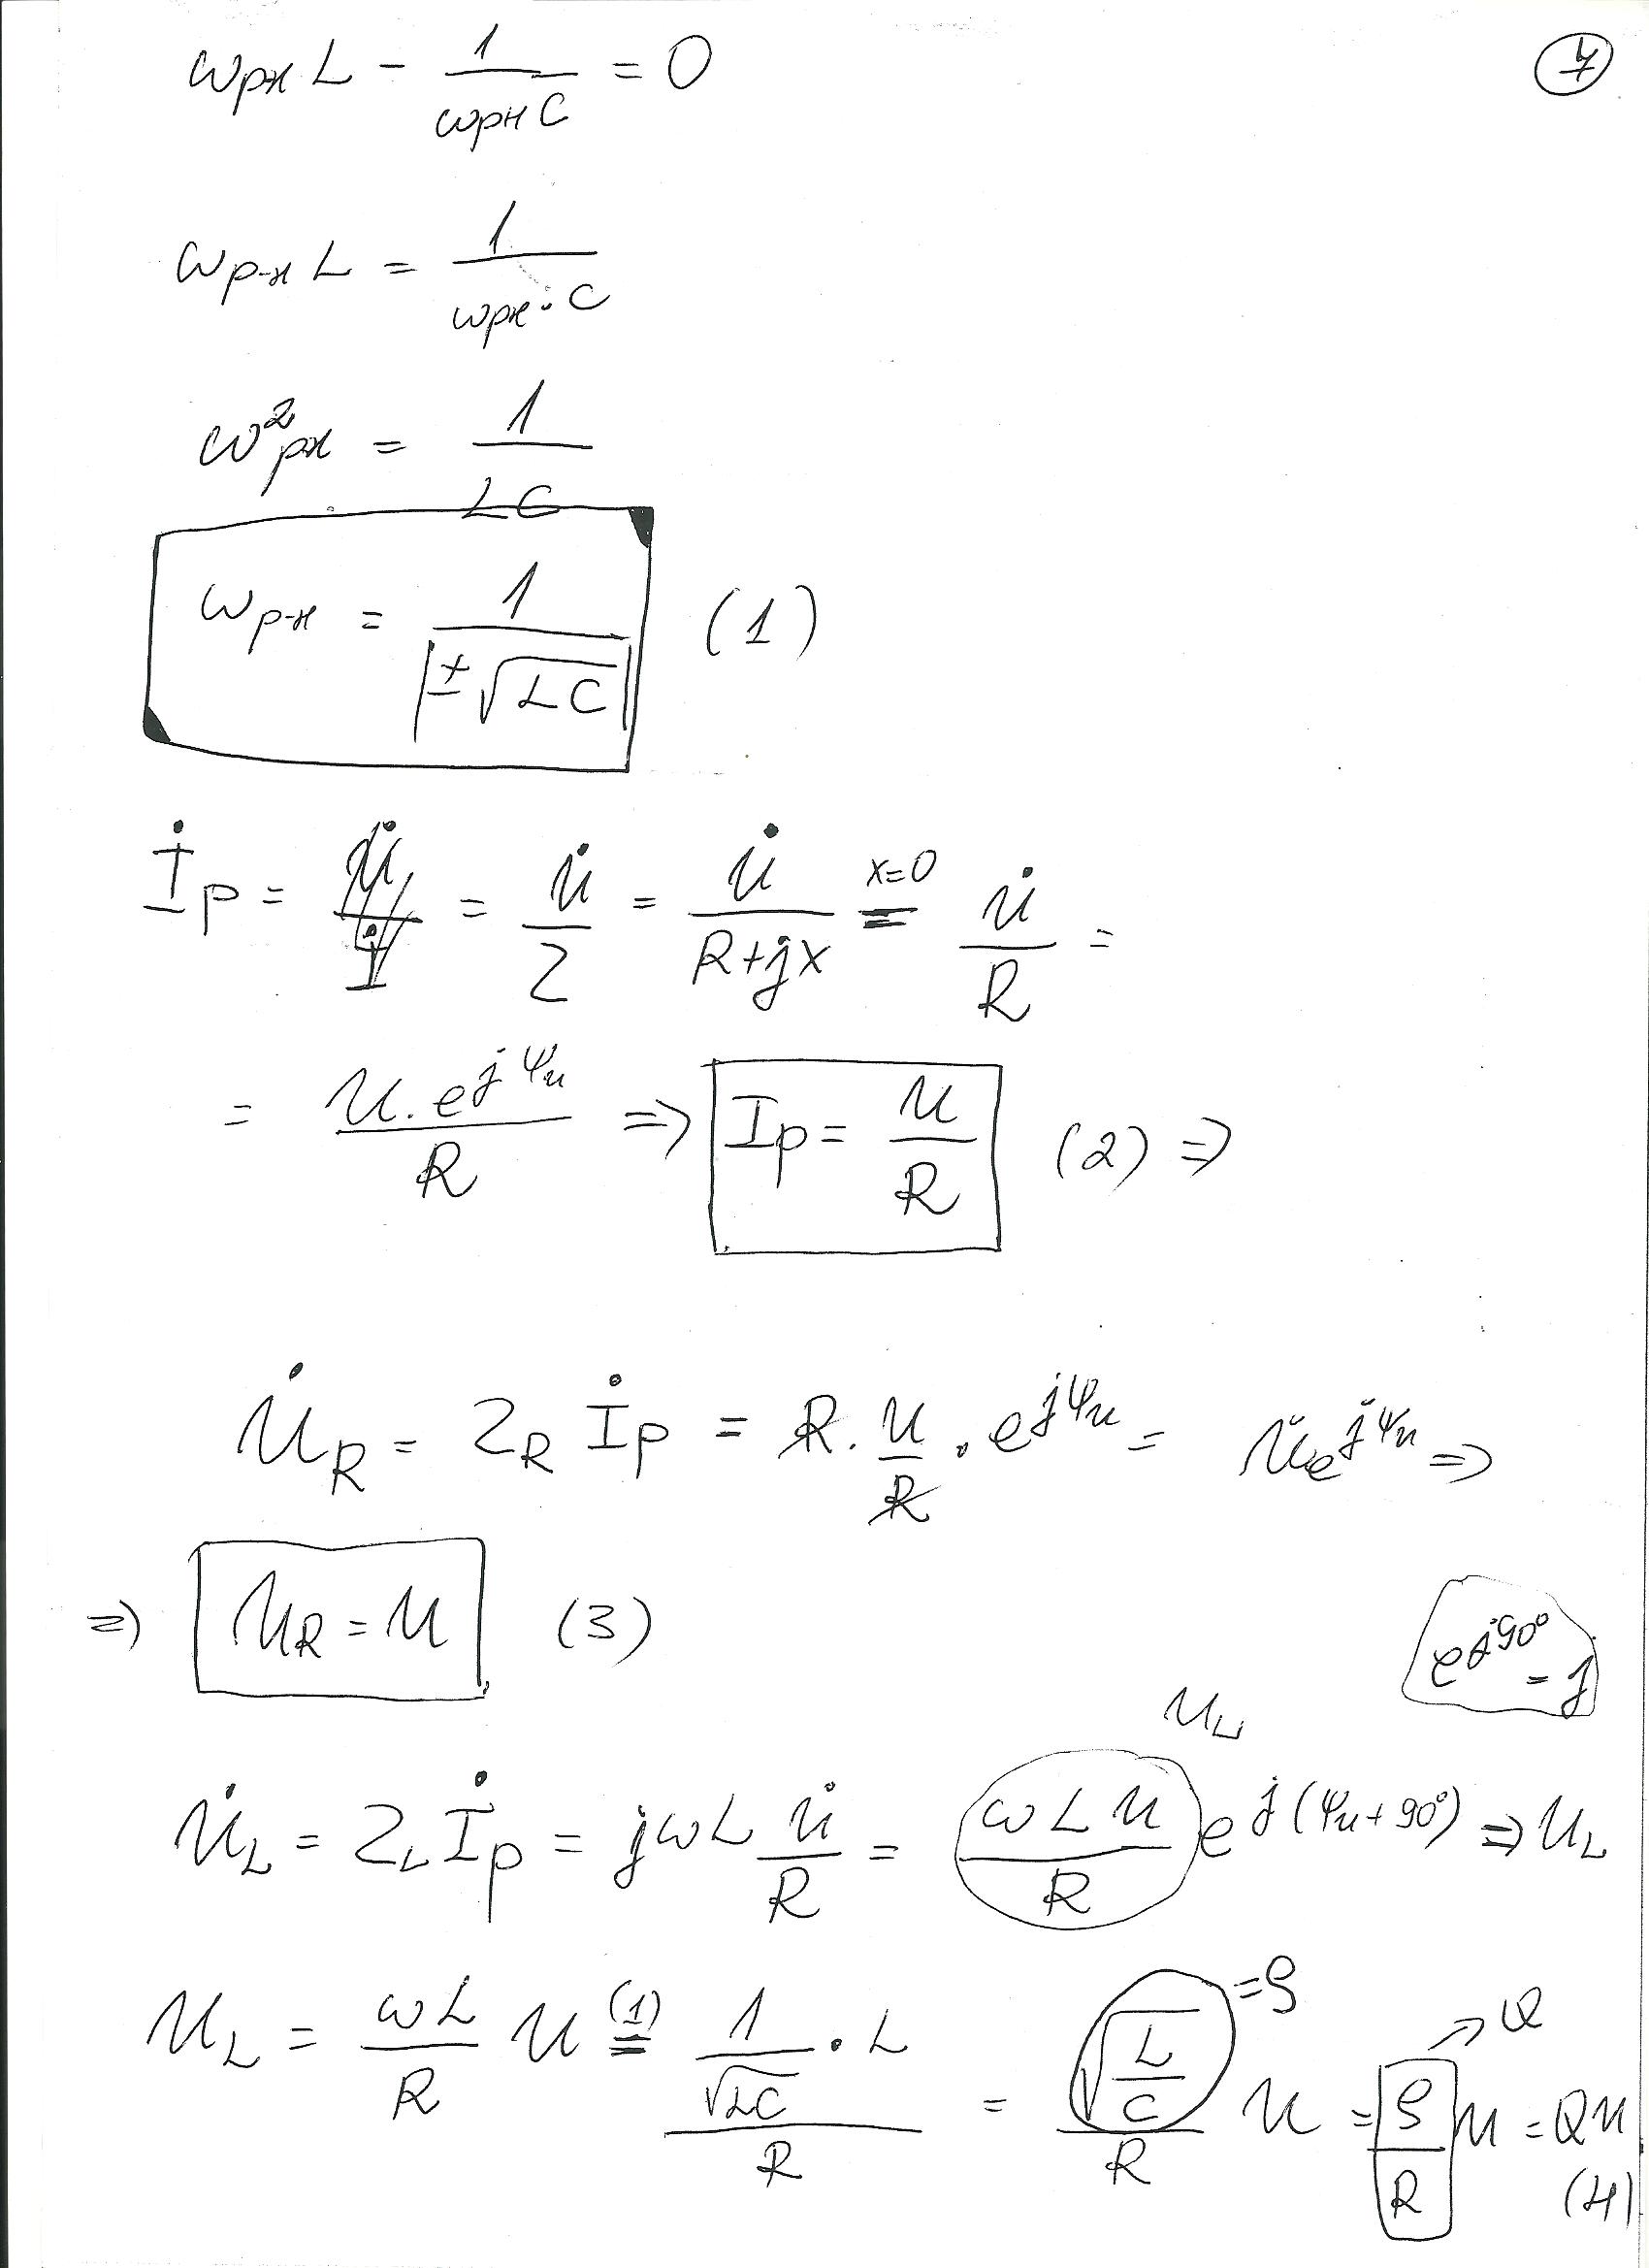 ωрн L - 1/(ωрн C) = 0
(7)
ωр-н L = 1/(ωрн · C)
ω²рн = 1/(LC)
ωр-н = 1/|±√(LC)| (1)
İp = U̇/İ = U̇/Z = U̇/(R+jx) =(x=0) U̇/R =
= U·e^(jψu)/R => Ip = U/R (2) =>
U̇R = ZR İp = R·U/R·e^(jψu) = U̇e^(jψu) =>
=> UR = U (3)
e^(j90°) = j
UL
U̇L = ZL İp = jωL U̇/R = (ωLU/R) e^(j(ψu+90°)) => UL
UL = (ωL/R) U =(1) (1/√(LC) · L)/R = (√(L/C) =ρ)/R U = (ρ/R →Q) U = QU (4)